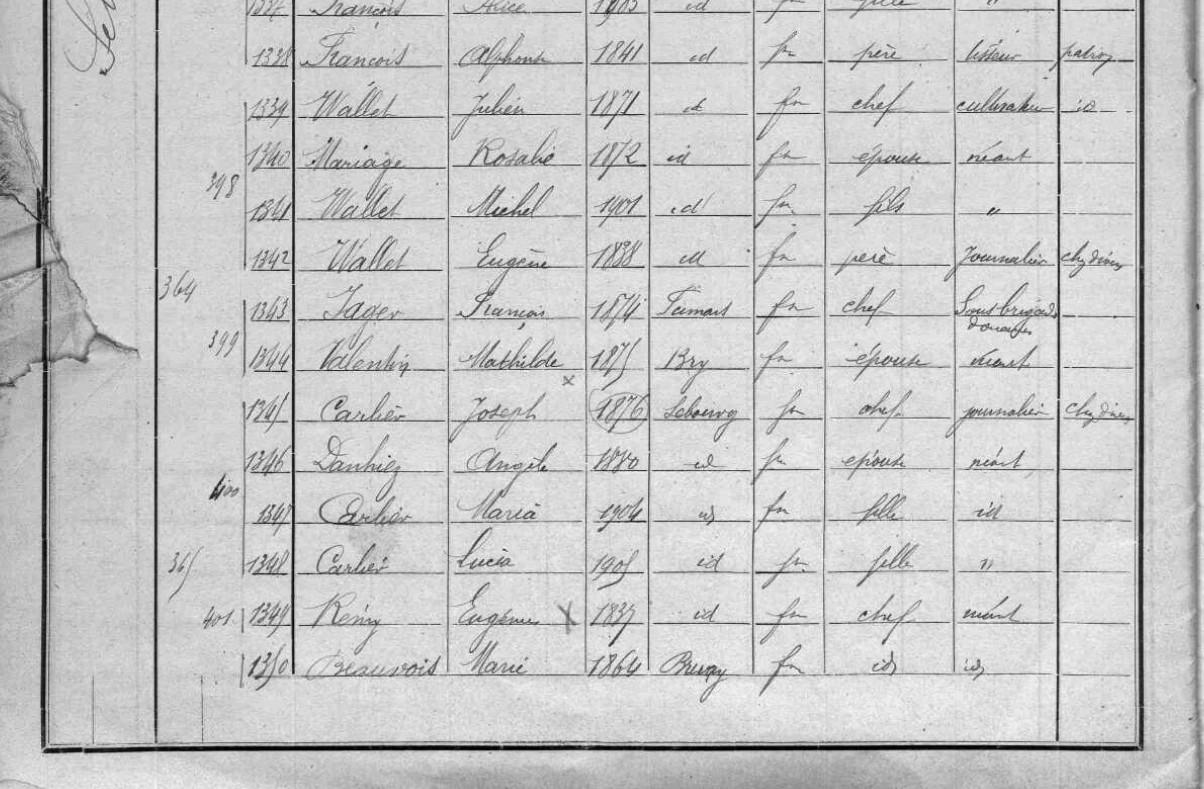 1337 François Alice 1903 id fr fille "
1338 François Alphonse 1841 id fr père tisseur patron
1339 Wallet Julien 1871 id fr chef cultivateur id
1340 Mariage Rosalie 1872 id fr épouse néant
398
1341 Wallet Michel 1901 id fr fils "
1342 Wallet Eugène 1838 id fr père Journalier
364
1343 Jager François 1874 fr chef Sous brigad
douanes
399
1344 Valentin Mathilde 1875 Bry fr épouse néant
x
1345 Carlier Joseph 1876 fr chef journalier
1346 Danhiez Angèle 1880 id fr épouse néant
400
1347 Carlier Maria 1904 id fr fille id
365 1348 Carlier Lucia 1905 id fr fille "
401 1349 Rémy X 1837 id fr chef néant
1350 Beauvois Marie 1864 fr id id